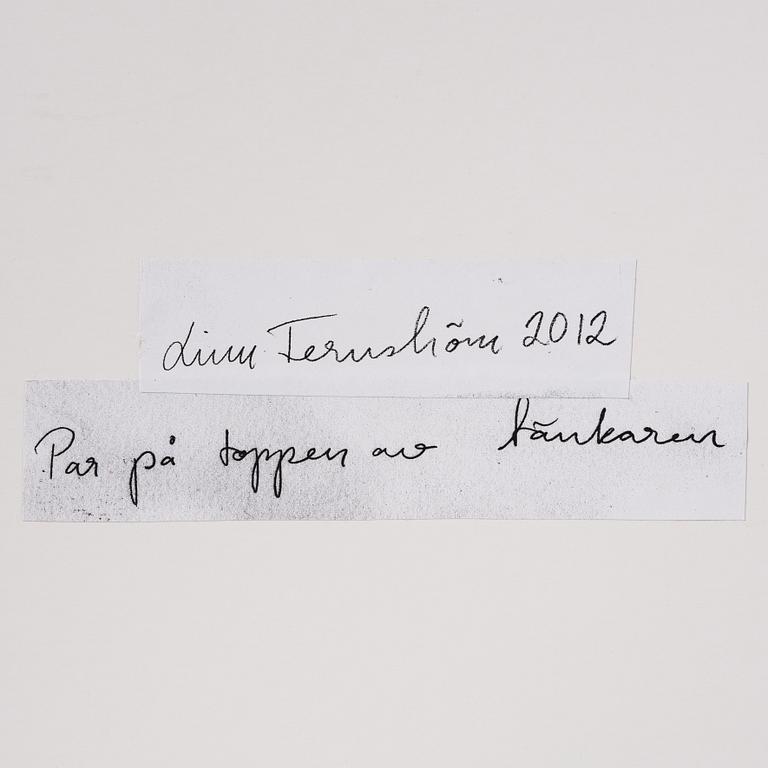 Linn Fernström 2012
Par på toppen av tänkaren